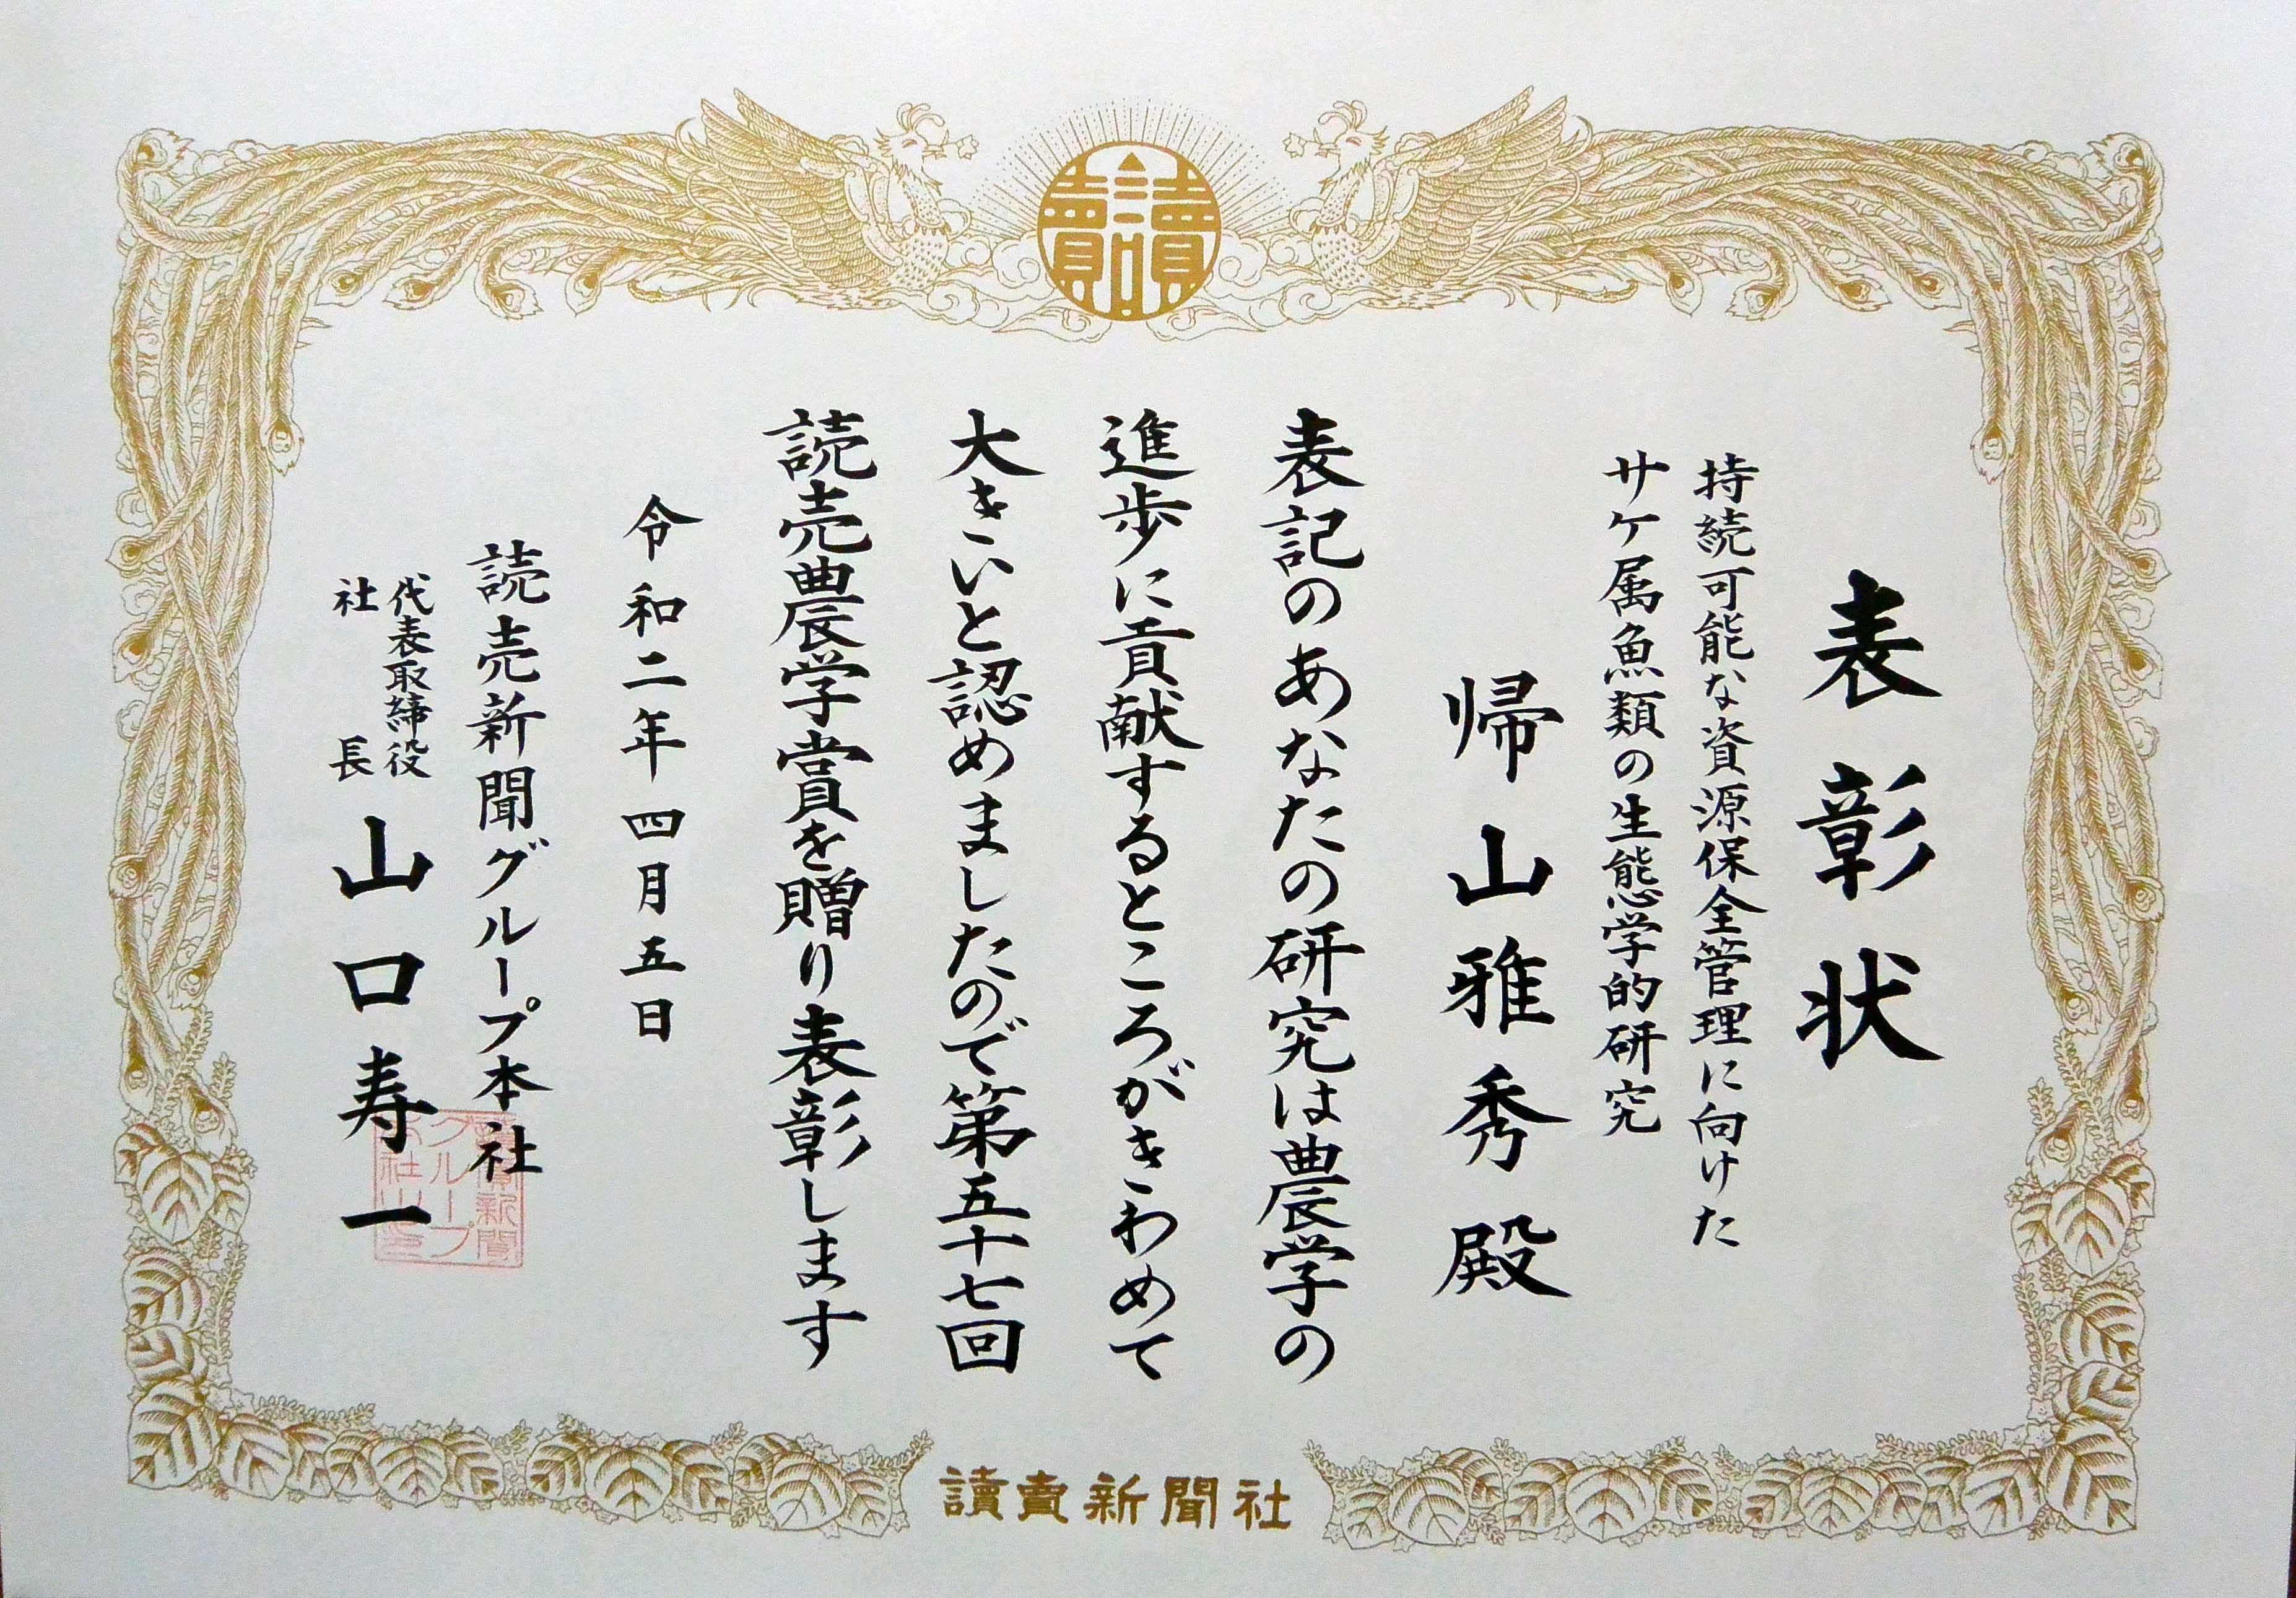 讀賣
表彰状
持続可能な資源保全管理に向けた
サケ属魚類の生態学的研究
帰山雅秀殿
表記のあなたの研究は農学の
進歩に貢献するところがきわめて
大きいと認めましたので第五十七回
読売農学賞を贈り表彰します
令和二年四月五日
読売新聞グループ本社
代表取締役
社長
山口寿一
讀賣新聞社